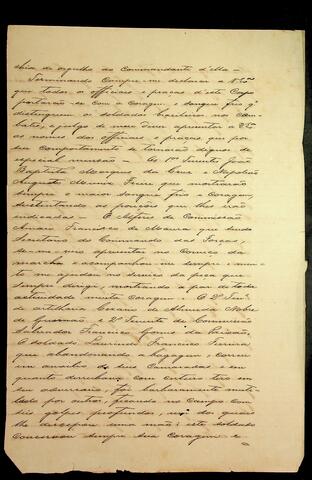 chia de orgulho ao Commandante d'ella —
Terminando cumpre-me declarar a V. Exª
que todos os officiaes e praças d'este Corpo
portarão-se com a coragem e sangue frio qº
distinguem os soldados brasileiros nos com
bates, e julgo de meu dever apresentar a V. Exª
os nomes dos officiaes e praças que por
seu comportamento se tornarão dignos de
especial mensão — Os 1ºs Tenentes João
Baptista Marques da Cruz e Napoleão
Augusto Muniz Freire que mostrarão
sempre o maior sangue frio e coragem,
sustentando as posições que lhes são
indicadas — O Alferes de Commissão
Francisco de Moura que sendo
Secretario do Commando das Forças,
veio-me apresentar no começo da
marcha e acompanhou-me sempre e mui
to me ajudou no serviço da peça que
sempre dirigi, mostrando a par de toda
actividade muita coragem — O 2º Tenᵗᵉ
de artilharia Cezario de Almeida Nobre
de Gusmão — O 2º Tenente de Commissão
Salvador Francisco Gomes da Paixão,
O soldado Laurindo Francisco Ferreira
que abandonando a bagagem, correu
em auxilio de seus camaradas e em
quanto derrubava com certeiro tiro um
seu adversario, foi barbaramente muti
lado por outros, ficando no campo com
seis golpes profundos, um dos quaes
lhe decepou uma mão; este soldado
conservou sempre sua coragem e